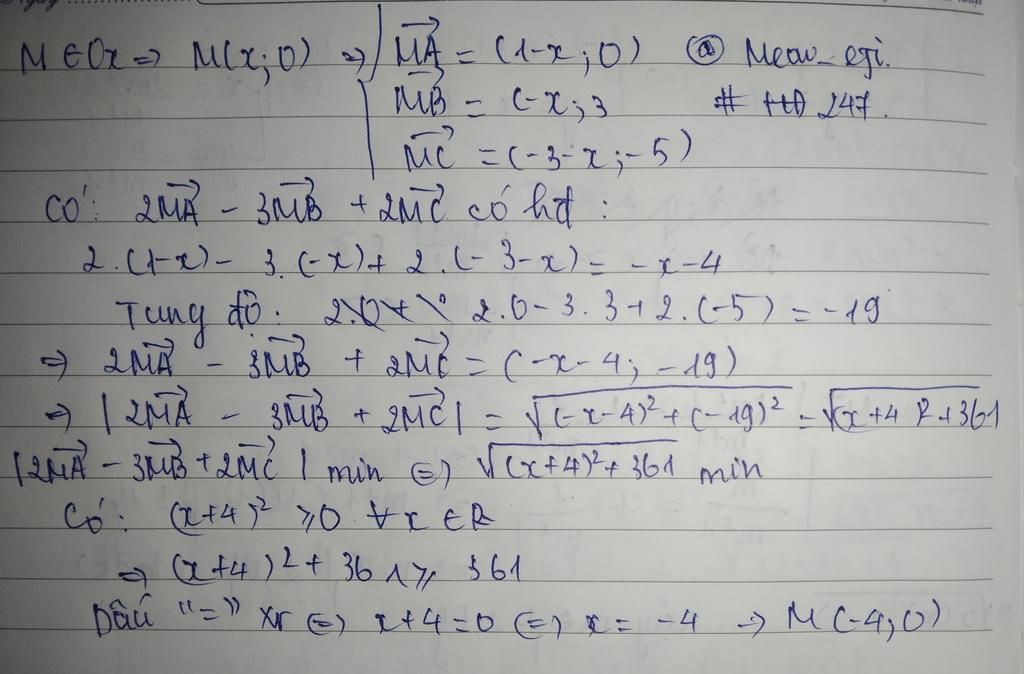 M ∈ Ox ⇒ M(x; 0) ⇒ MA→ = (1-x; 0) @ Meow_eji.
MB→ = (-x; 3 # 247.
MC→ = (-3-x; -5)
Có: 2MA→ - 3MB→ + 2MC→ có hđ :
2.(1-x) - 3.(-x) + 2.(-3-x) = -x-4
Tung độ: 2.0 - 3.3 + 2.(-5) = -19
⇒ 2MA→ - 3MB→ + 2MC→ = (-x-4; -19)
⇒ |2MA→ - 3MB→ + 2MC→| = √((-x-4)² + (-19)²) = √((x+4)² + 361)
|2MA→ - 3MB→ + 2MC→| min ⇔ √((x+4)² + 361) min
Có: (x+4)² ≥ 0 ∀x ∈ R
⇒ (x+4)² + 361 ≥ 361
Dấu "=" xr ⇔ x+4=0 ⇔ x = -4 → M(-4; 0)